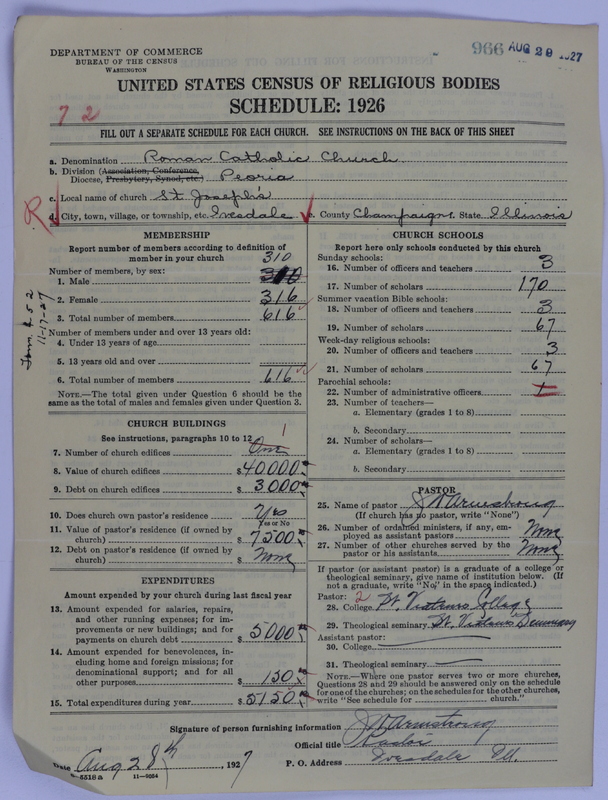 DEPARTMENT OF COMMERCE
BUREAU OF THE CENSUS
WASHINGTON
966 AUG 29 1927
UNITED STATES CENSUS OF RELIGIOUS BODIES
SCHEDULE: 1926
7 2
FILL OUT A SEPARATE SCHEDULE FOR EACH CHURCH. SEE INSTRUCTIONS ON THE BACK OF THIS SHEET
a. Denomination Roman Catholic Church
b. Division (Association, Conference, Diocese, Presbytery, Synod, etc.) Peoria
c. Local name of church St Joseph's
R d. City, town, village, or township, etc. Ivesdale e. County Champaign State Illinois
MEMBERSHIP
Report number of members according to definition of member in your church
310
Number of members, by sex:
1. Male 310
2. Female 316
3. Total number of members 616
Number of members under and over 13 years old:
4. Under 13 years of age
5. 13 years old and over
6. Total number of members 616
NOTE.—The total given under Question 6 should be the same as the total of males and females given under Question 3.
11-17-27
CHURCH BUILDINGS
See instructions, paragraphs 10 to 12
7. Number of church edifices One 1
8. Value of church edifices $ 40000
9. Debt on church edifices $ 3000
10. Does church own pastor's residence Yes
Yes or No
11. Value of pastor's residence (if owned by church) $ 7500
12. Debt on pastor's residence (if owned by church) $ None
EXPENDITURES
Amount expended by your church during last fiscal year
13. Amount expended for salaries, repairs, and other running expenses; for improvements or new buildings; and for payments on church debt $ 5000
14. Amount expended for benevolences, including home and foreign missions; for denominational support; and for all other purposes $ 150
15. Total expenditures during year $ 5150
CHURCH SCHOOLS
Report here only schools conducted by this church
Sunday schools:
16. Number of officers and teachers 3
17. Number of scholars 170
Summer vacation Bible schools:
18. Number of officers and teachers 3
19. Number of scholars 67
Week-day religious schools:
20. Number of officers and teachers 3
21. Number of scholars 67
Parochial schools:
22. Number of administrative officers 1
23. Number of teachers—
a. Elementary (grades 1 to 8)
b. Secondary
24. Number of scholars—
a. Elementary (grades 1 to 8)
b. Secondary
PASTOR
25. Name of pastor J W Armstrong
(If church has no pastor, write "None")
26. Number of ordained ministers, if any, employed as assistant pastors None
27. Number of other churches served by the pastor or his assistants None
If pastor (or assistant pastor) is a graduate of a college or theological seminary, give name of institution below. (If not a graduate, write "No," in the space indicated.)
Pastor: 2
28. College St. Viateurs College
29. Theological seminary St. Viateurs Seminary
Assistant pastor:
30. College
31. Theological seminary
NOTE.—Where one pastor serves two or more churches, Questions 28 and 29 should be answered only on the schedule for one of the churches; on the schedules for the other churches, write "See schedule for ........ church."
Signature of person furnishing information J W Armstrong
Official title Pastor
Date Aug 28th, 1927 P. O. Address Ivesdale Ill.
8-5518a 11-9064